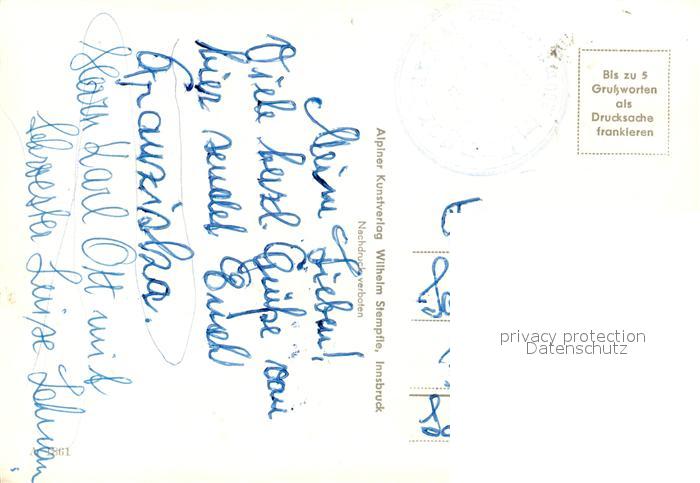 Meine Lieben!
Viele herzl. Grüße von
hier sendet Euch
Franziska.
Karl Ott und
Schwester Luise
Alpiner Kunstverlag Wilhelm Stempfle, Innsbruck
Nachdruck verboten
Bis zu 5
Grußworten
als
Drucksache
frankieren
privacy protection
Datenschutz